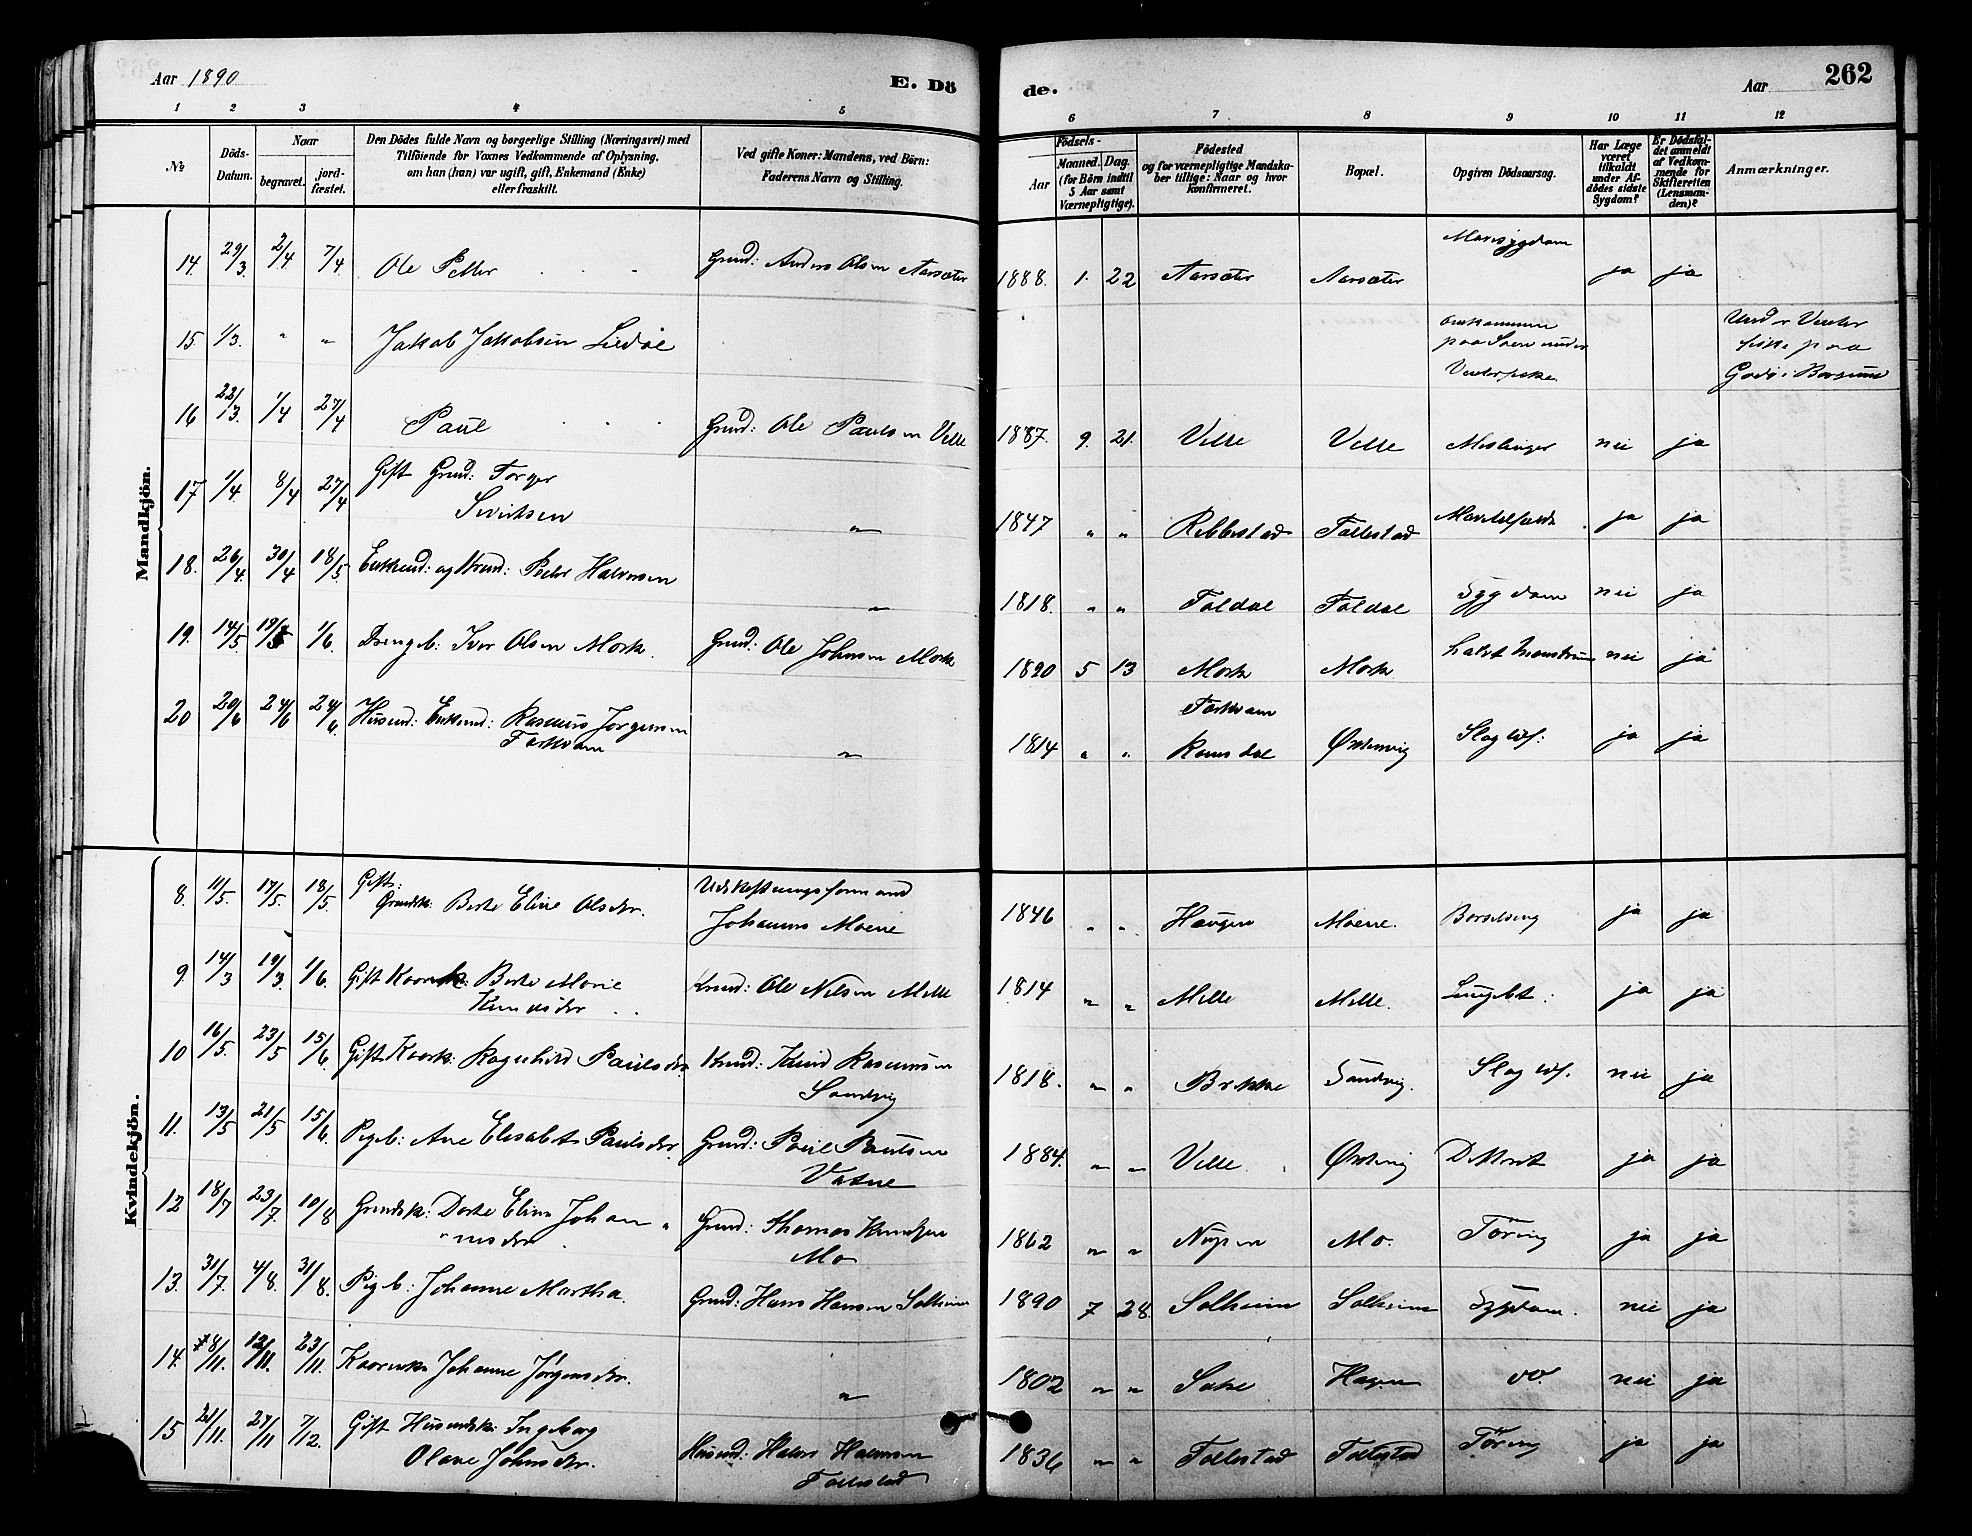 Aar 1890
E. Dö
de.
Aar
262
1 2 3 4 5 6 7 8 9 10 11 12
№
Döds-Datum.
Naar
begravet.
jord-fæstet.
Den Dödes fulde Navn og borgerlige Stilling (Næringsvei) med
Tilföiende for Voxnes Vedkommende af Oplysning.
om han (han) var ugift, gift, Enkemand (Enke)
eller fraskilt.
Ved gifte Koner: Mandens, ved Börn:
Faderens Navn og Stilling.
Födsels-
Aar
Maaned. Dag.
(for Börn indtil
5 Aar samt
Værnepligtige).
Födested
og for værnepligtige Mandska-
ber tillige: Naar og hvor
konfirmeret.
Bopæl.
Opgiven Dödsaarsag.
Har Læge
været
tilkaldt
under Af-
dödes sidste
Sygdom?
Er Dödsfal-
det anmeldt
af Vedkom-
mende for
Skifteretten
(Lensman-
den)?
Anmærkninger.
Mandkjön.
14 29/3 2/4 7/4 Ole Petter Grmd: Anders Olsen Aarsæter 1888. 1. 22 Aarsæter Aarsæter Mavesygdom ja ja
15. 1/3. " " Jakob Jakobsen omkommen
paa Søen under
Vinterfiske
Under Vinter
fiske paa
Godø i Borgund
16 22/3 1/4 27/4 Paul Grmd: Ole Paulsen Velle 1887. 9. 21. Velle Velle Meslinger nei ja
17 1/4. 8/4 27/4 Gift Grmd: Torger
Sivertsen " 1847 " " Ribbestad Follestad ja ja
18. 26/4 30/4 18/5 Enkemd: og Peder Halvorsen " 1818. " " Foldal Foldal Sygdom nei ja
19. 14/5 1/6. Drengeb: Iver Olsen Mork. Grmd: Ole Johnsen Mork 1890 5 13 Mork Mork nei ja
20 20/6 24/6 24/6. Husmd: Enkemd: Rasmus Jørgensen
Torkvam " 1814 " " Torkvam
Romsdal Østenvig Slagtilf: ja ja
Kvindekjön.
8. 11/5. 17/5. 18/5 Gift:
Grmdsk: Berte Eline Olsdtr. Udskiftningsformand
Johannes Moene 1846 " " Haugen Moene. Barselseng ja ja
9. 14/3 19/3 1/6. Gift Berte Marie
Knudsdtr Ole Nilsen Melle 1814 " " Melle Melle. ja ja
10 16/5. 23/5 15/6 Gift Ragnhild Paulsdtr Knud Rasmussen
Sandvig 1818. " " Brekke Sandvig. Slagtilf. nei ja
11. 13/5 21/5 15/6. Pigeb: Ane Elisabet Paulsdtr Grmd: Paul Paulsen
Vatne 1884. " " Velle. Østenvig ja ja
12 18/7 23/7. 10/8 Grmdsk: Dorte Eline Johan-
nesdtr Grmd: Thomas Knudsen
Mo 1862 " " Nupen Mo. Tæring ja ja
13. 31/7 4/8. 31/8. Pigeb: Johanne Martha. Grmd: Hans Hansen Solheim 1890 7 28. Solheim Solheim Sygdom. nei ja
14. 8/11. 12/11. 23/11. Johanne Jørgensdtr. " 1802 " " Hagen do. nei ja
15 21/11. 27/11 7/12. Gift Husmdsk: Ingeborg
Olave Johnsdtr. Husmd: Halvor Halvorsen
Follestad 1836 " " Follestad Follestad Tæring ja ja